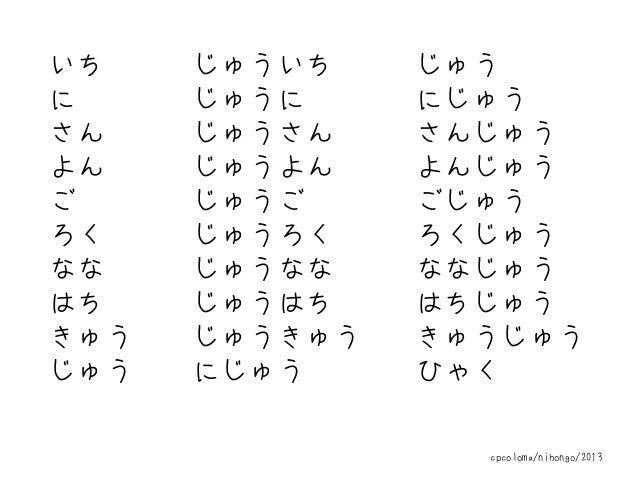 いち じゅういち じゅう
に じゅうに にじゅう
さん じゅうさん さんじゅう
よん じゅうよん よんじゅう
ご じゅうご ごじゅう
ろく じゅうろく ろくじゅう
なな じゅうなな ななじゅう
はち じゅうはち はちじゅう
きゅう じゅうきゅう きゅうじゅう
じゅう にじゅう ひゃく
cpcoloma/nihongo/2013